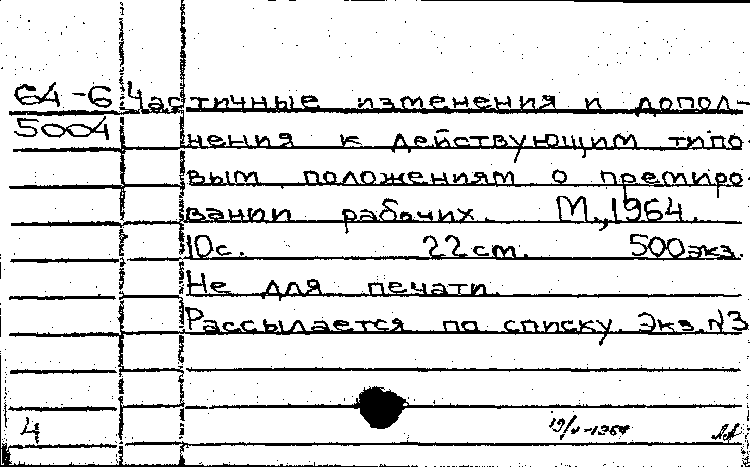 64-6 Частичные изменения и допол-
5004 нения к действующим типо-
вым положениям о премиро-
вании рабочих. М., 1964.
10с. 22 cm. 500 экз.
Не для печати.
Рассылается по списку. Экз. N3
4